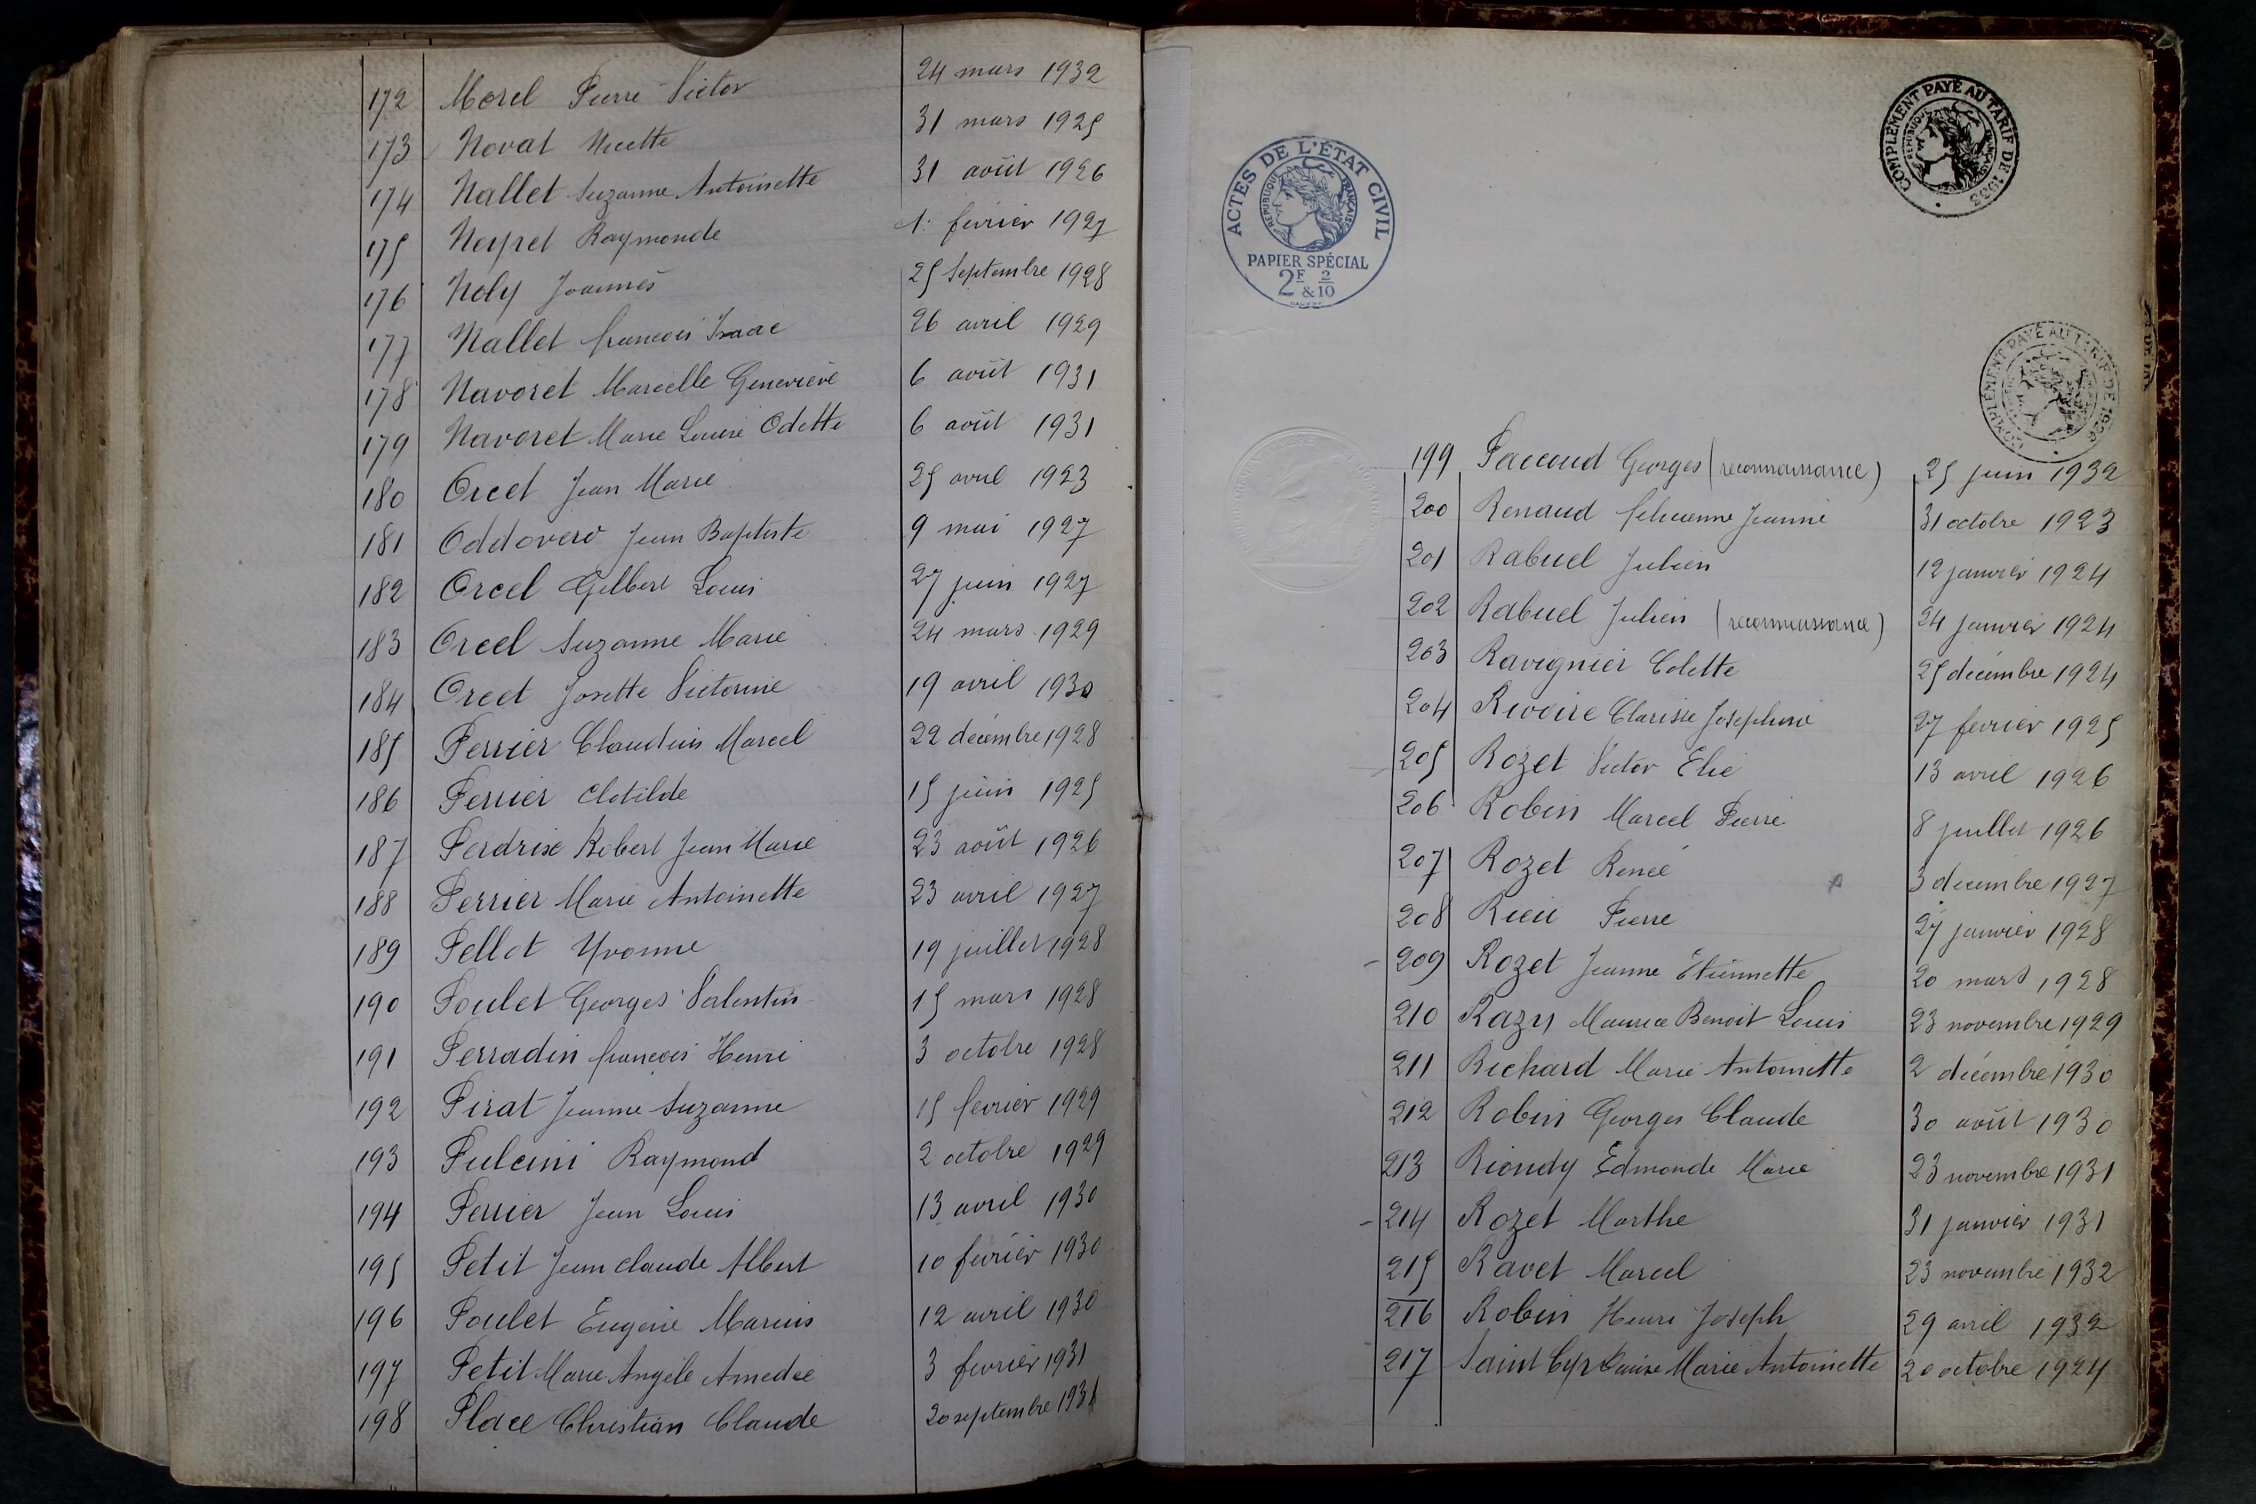 172 Morel Pierre Victor 24 mars 1932
173 Novat Nicette 31 mars 1925
174 Nallet Suzanne Antoinette 31 août 1926
175 Neyret Raymonde 1. février 1927
176 Noly Joannès 25 septembre 1928
177 Nallet françois Isaac 26 avril 1929
178 Navoret Marcelle Geneviève 6 août 1931
179 Navoret Marie Louise Odette 6 août 1931
180 Orcet Jean Marie 25 avril 1923
181 Oddovero Jean Baptiste 9 mai 1927
182 Orcel Gilbert Louis 27 juin 1927
183 Orcel Suzanne Marie 24 mars 1929
184 Orcet Josette Victorine 19 avril 1930
185 Perrier Claudius Marcel 22 décembre 1928
186 Perrier Clotilde 15 juin 1925
187 Perdrix Robert Jean Marie 23 août 1926
188 Perrier Marie Antoinette 23 avril 1927
189 Pellot Yvonne 19 juillet 1928
190 Poulet Georges Valentin 15 mars 1928
191 Perradin françois Henri 3 octobre 1928
192 Pirat Jeanne Suzanne 15 février 1929
193 Pulcini Raymond 2 octobre 1929
194 Perrier Jean Louis 13 avril 1930
195 Petit Jean claude Albert 10 février 1930
196 Poulet Eugène Marius 12 avril 1930
197 Petit Marie Angèle Amedée 3 février 1931
198 Place Christian Claude 20 septembre 1931
COMPLÉMENT PAYÉ AU TARIF DE 1933
RÉPUBLIQUE FRANÇAISE
ACTES DE L'ÉTAT CIVIL
RÉPUBLIQUE FRANÇAISE
PAPIER SPÉCIAL
2F & 2/10
COMPLÉMENT PAYÉ AU TARIF DE 1926
199 Paccoud Georges (reconnaissance) 25 juin 1932
200 Renaud felicienne Jeanne 31 octobre 1923
201 Rabuel Julien 12 janvier 1924
202 Rabuel Julien (reconnaissance) 24 janvier 1924
203 Ravignier Colette 25 décembre 1924
204 Rivoire Clarisse Josephine 27 février 1925
205 Rozet Victor Elie 13 avril 1926
206 Robin Marcel Pierre 8 juillet 1926
207 Rozet Renée 3 décembre 1927
208 Rieu Pierre 27 janvier 1928
209 Rozet Jeanne Etiennette 20 mars 1928
210 Razy Maurice Benoit Louis 23 novembre 1929
211 Richard Marie Antoinette 2 décembre 1930
212 Robin Georges Claude 30 août 1930
213 Riondy Edmonde Marie 23 novembre 1931
214 Rozet Marthe 31 janvier 1931
215 Ravet Marcel 23 novembre 1932
216 Robin Henri Joseph 29 avril 1932
217 Saint Cyr Louise Marie Antoinette 20 octobre 1924